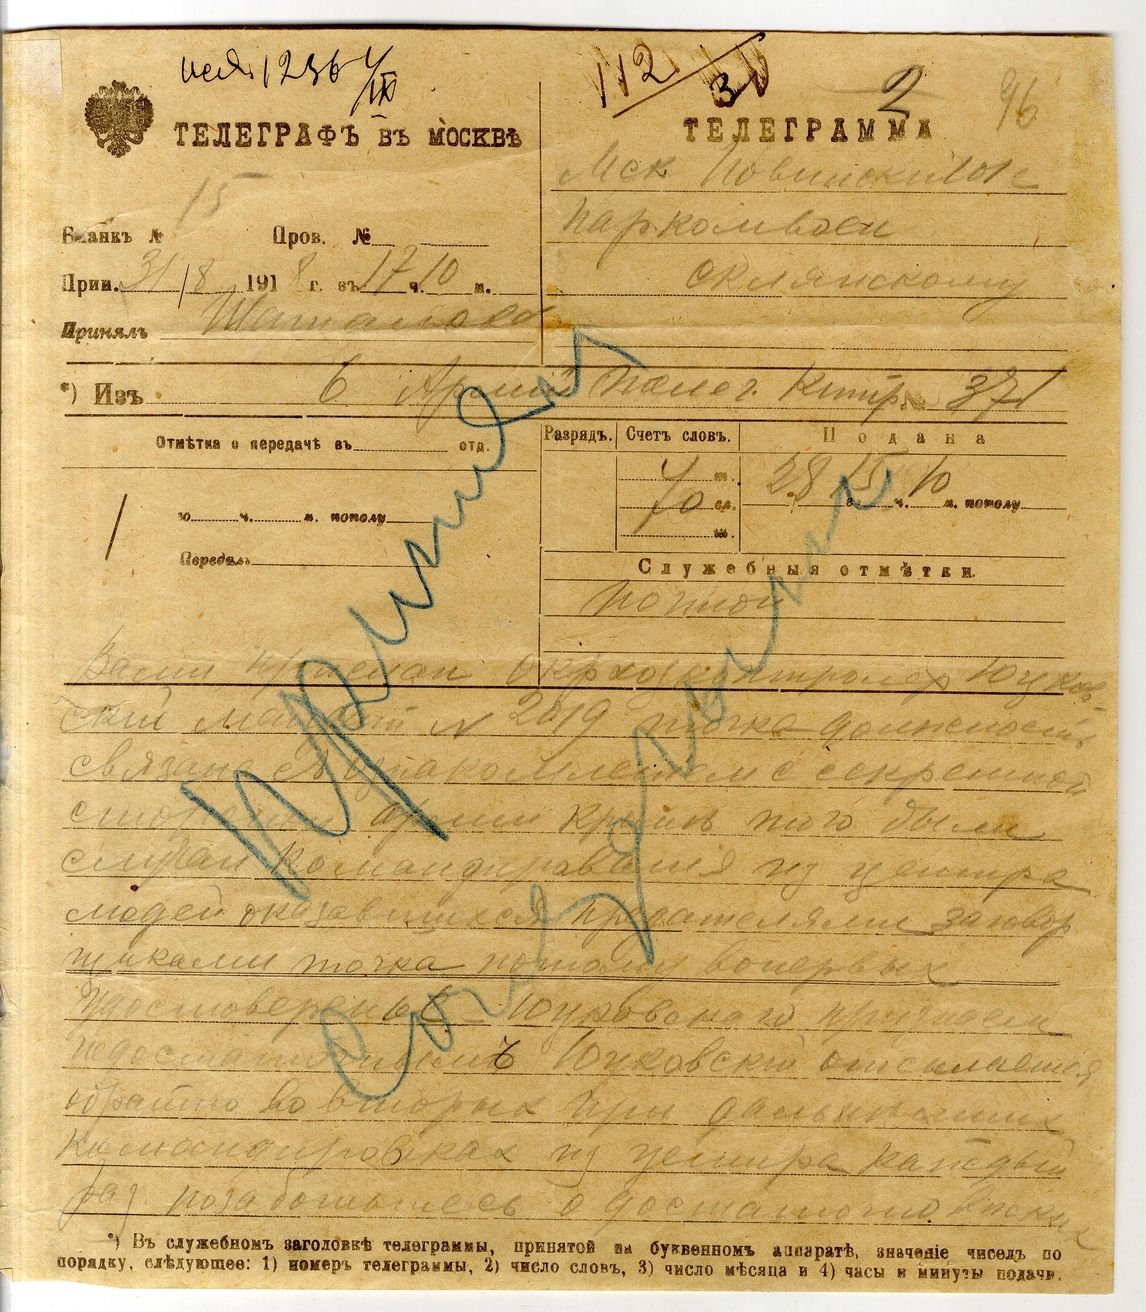 1236
112
3
2
96
ТЕЛЕГРАФЪ въ МОСКВѢ
ТЕЛЕГРАММА
15
Мск Новинский 101
Наркомвоен
Склянскому
Бланкъ № Пров. №
Прин. 31/8 1918 г. въ 17 ч. 10 м.
Принялъ
*) Изъ 6 Армии Полег. № 371
Отмѣтка о передачѣ въ отд.
го ч. м. пополу
Передалъ
Разрядъ. Счетъ словъ. Подана
70 сл.
28 15 ч. 10 м. пополу
Служебныя отмѣтки.
Вами прислан окрвоенконтролер Юуков-
ский мандат N 2019 точка должность
связана с ознакомлением с секретной
стороной армии кроме того были
случаи командирования из центра
людей оказавшихся предателями заговор
щиками точка потому вопервых
удостоверение признаем
недостаточным отсылается
обратно во вторых при дальнейших
командировках из центра каждый
раз позаботьтесь о достаточно веских
Пришел
Созвонит
*) Въ служебномъ заголовкѣ телеграммы, принятой на буквенномъ аппаратѣ, значеніе чиселъ по
порядку, слѣдующее: 1) номеръ телеграммы, 2) число словъ, 3) число мѣсяца и 4) часы и минуты подачи.